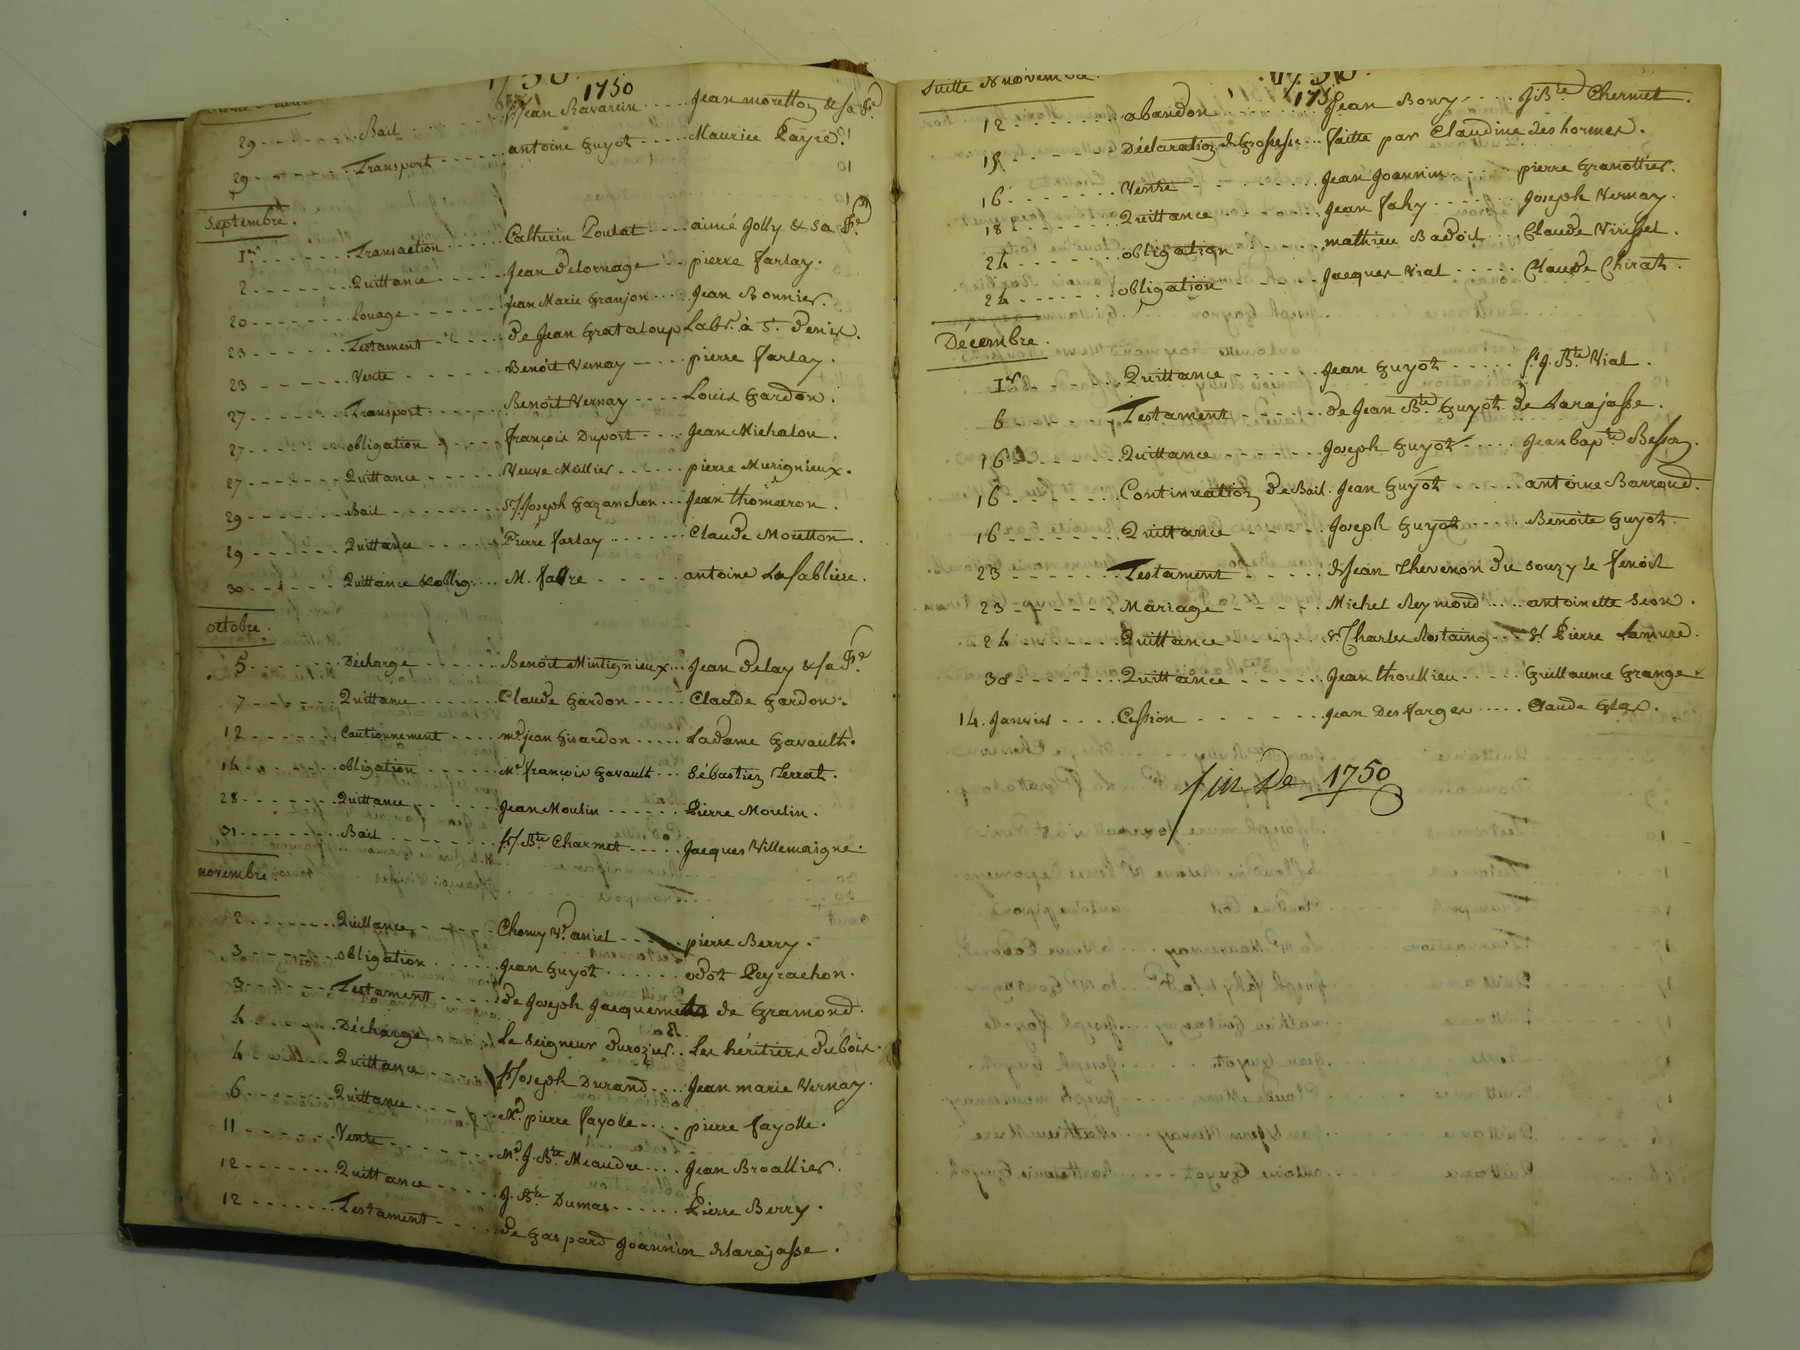 1750
29 Bail Sr Jean Bavarein Jean moretton & sa fe
29 Transport antoine Guyot Maurice Payre
Septembre.
1er Transaction Catherin Poulat aimé Jolly & sa fe
2 Quittance Jean Delornage pierre farlay.
20 Louage Jean Marie Granjon Jean Bonnier.
23 Testament de Jean Grataloup Labr. à St. denis.
23 Vente Benoit Vernay pierre farlay.
27 Transport Benoit Vernay Louis Gardon.
27 obligation françois Duport Jean Michalon.
27 Quittance Veuve Mellier pierre Murignieux.
29 Bail Sr Joseph Gazanchon Jean thomaron.
29 Quittance Pierre farlay Claude Moretton.
30 Quittance & oblig. M. favre antoine La Sabliere.
octobre.
5 Décharge Benoit Mintignieux Jean Delay & sa fe
7 Quittance Claude Gardon Claude Gardon.
12 Cautionnement md jean Girardon La dame Gavault.
14 obligation Mr françois Gavault Sébastien Terrat.
28 Quittance Jean Moulin Pierre Moulin.
31 Bail Sr J. Bte Charmet Jacques Villemaigne.
novembre.
2 Quittance Chomy Ve aniel pierre Berry.
3 obligation Jean Guyot odot Peyrachon.
3 Testament de Joseph Jacquemetto de Gramond.
4 Décharge Le seigneur durozier Les héritiers dubois.
4 Quittance Sr Joseph Durand Jean marie Vernay.
6 Quittance Md. pierre fayolle pierre fayolle.
11 Vente Md. J. Bte Meaudre Jean Broallier.
12 Quittance J. Bte Dumas Pierre Berry.
12 Testament de Gaspard Joannin de Larajasse.
Suitte de novembre.
1750
12 abandon Jean Bony J Bte Chermet.
15 Déclaration de Grossesse faitte par Claudine deshormes.
16 Vente Jean Joannin pierre Granottier.
18 Quittance Jean fahy Joseph Vernay.
24 obligation mathieu Badoil Claude Virisset.
24 obligation Jacques Vial Claude Chirat.
Décembre.
1er Quittance Jean Guyot Sr. J. Bte Vial.
6 Testament de Jean Bte Guyot de Larajasse.
16 Quittance Joseph Guyot Jean bapte Bessa.
16 Continuation de Bail. Jean Guyot antoine Barroud.
16 Quittance Joseph Guyot Benoite Guyot.
23 Testament de Jean Thevenon du souzy Le fenoit
23 Mariage Michel Reymond antoinette Seon.
24 Quittance Sr Charles Rostaing Sr Pierre Lamure.
30 Quittance Jean thoullieu Guillaume Grange.
14. Janvier Cession Jean Desfarges Claude Glas.
fin De 1750